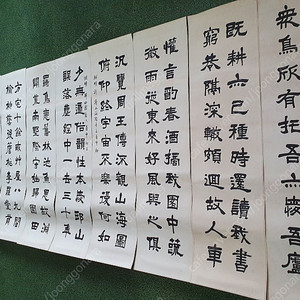 衆鳥欣有托吾亦愛吾廬
既耕亦已種時還讀我書
窮巷隔深轍頗迴故人車
懽言酌春酒摘我園中蔬
微雨從東來好風與之俱
汎覽周王傳流觀山海圖
俯仰終宇宙不樂復何如
少無適俗韻性本愛邱山
誤落塵網中一去三十年
羈鳥戀舊林池魚思故淵
開荒南野際守拙歸園田
方宅十餘畝草屋八九間
榆柳蔭後簷桃李羅堂前
joonggonara